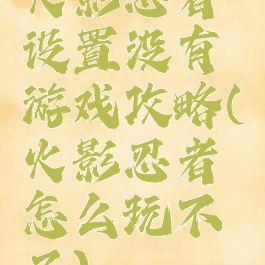 火影忍者
设置没有
游戏攻略(
火影忍者
怎么玩不
了)